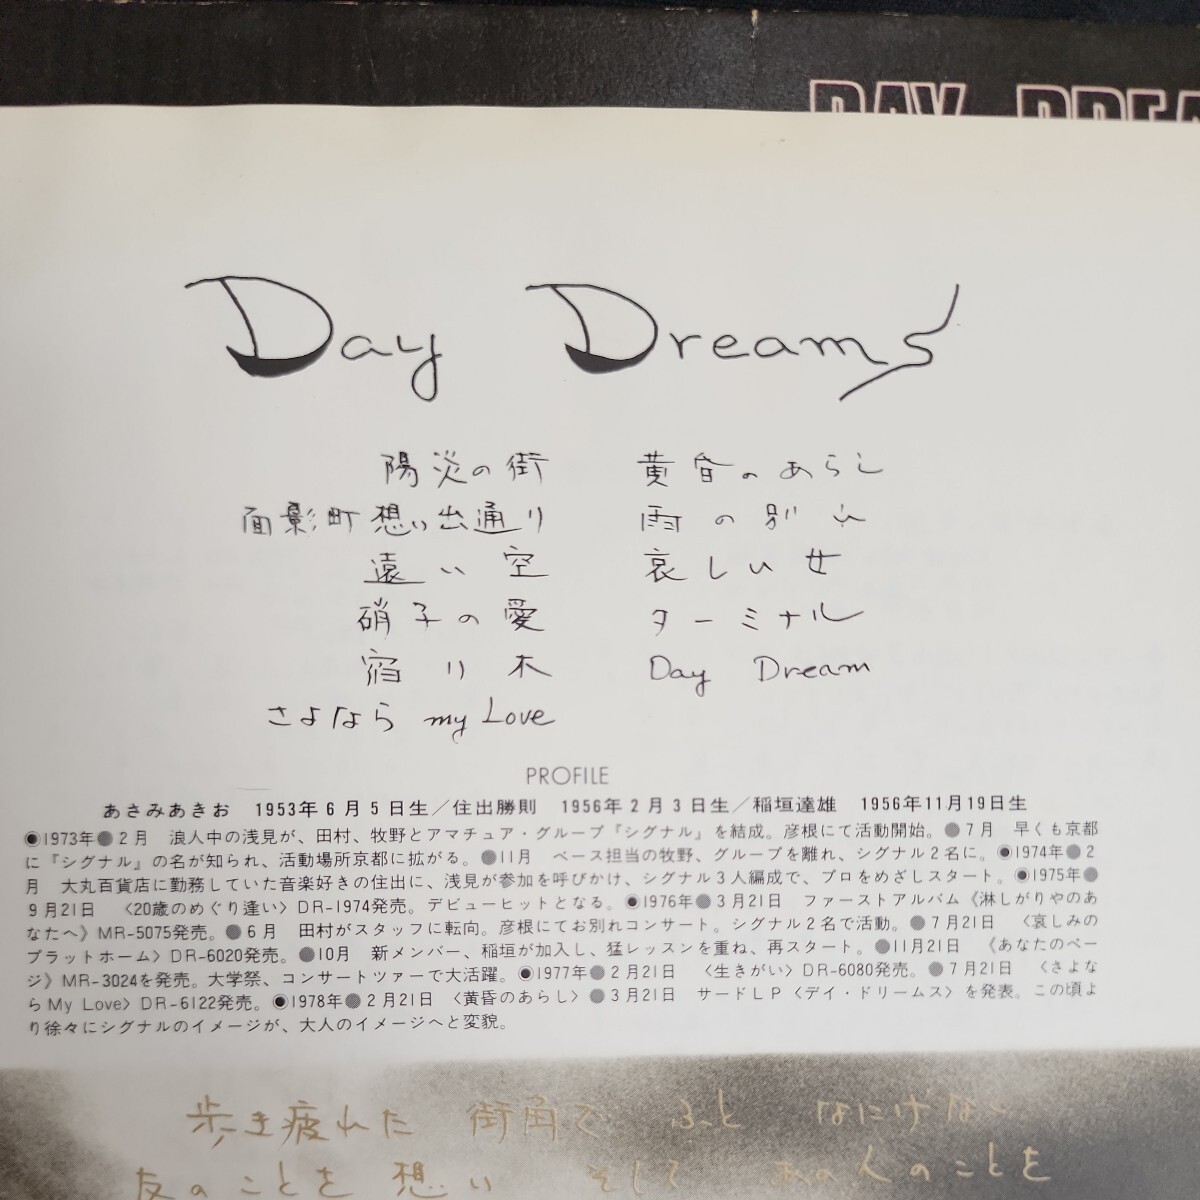 DAY DREA
Day Dreams
陽炎の街
面影町想い出通り
遠い空
硝子の愛
宿り木
さよなら my Love
黄昏のあらし
雨の別れ
哀しい女
ターミナル
Day Dream
PROFILE
あさみあきお 1953年6月5日生/住出勝則 1956年2月3日生/稲垣達雄 1956年11月19日生
◉1973年●2月 浪人中の浅見が、田村、牧野とアマチュア・グループ『シグナル』を結成。彦根にて活動開始。●7月 早くも京都
に『シグナル』の名が知られ、活動場所京都に拡がる。●11月 ベース担当の牧野、グループを離れ、シグナル2名に。◉1974年●2
月 大丸百貨店に勤務していた音楽好きの住出に、浅見が参加を呼びかけ、シグナル3人編成で、プロをめざしスタート。◉1975年●
9月21日 〈20歳のめぐり逢い〉DR-1974発売。デビューヒットとなる。◉1976年●3月21日 ファーストアルバム《淋しがりやのあ
なたへ》MR-5075発売。●6月 田村がスタッフに転向。彦根にてお別れコンサート。シグナル2名で活動。●7月21日 〈哀しみの
プラットホーム〉DR-6020発売。●10月 新メンバー、稲垣が加入し、猛レッスンを重ね、再スタート。●11月21日 《あなたのペー
ジ》MR-3024を発売。大学祭、コンサートツァーで大活躍。◉1977年●2月21日 〈生きがい〉DR-6080発売。●7月21日 〈さよな
らMy Love〉DR-6122発売。◉1978年●2月21日 〈黄昏のあらし〉●3月21日 サードLP〈デイ・ドリームス〉を発表。この頃よ
り徐々にシグナルのイメージが、大人のイメージへと変貌。
歩き疲れた 街角で ふと なにげない
友のことを 想い そして あの人のことを